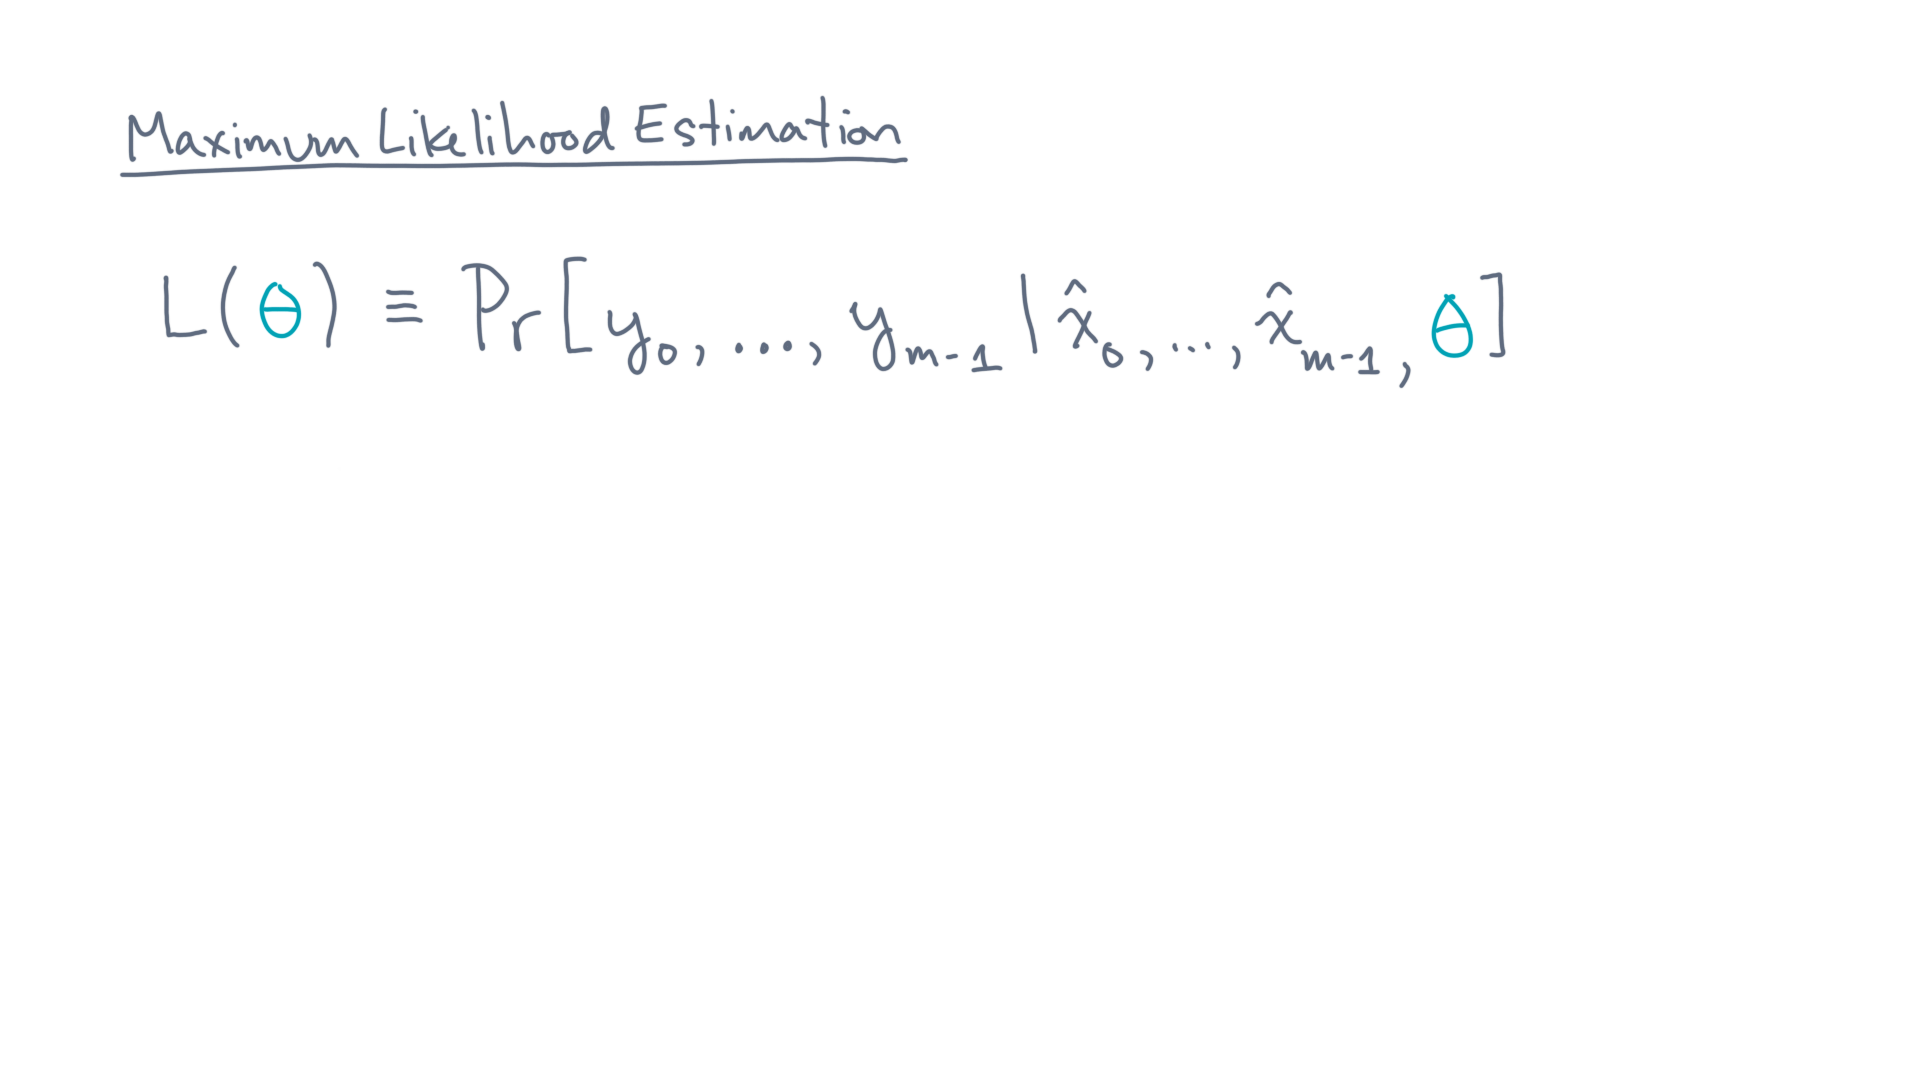 Maximum Likelihood Estimation
L(θ) ≡ Pr[y₀, ..., yₘ₋₁ | x̂₀, ..., x̂ₘ₋₁, θ]